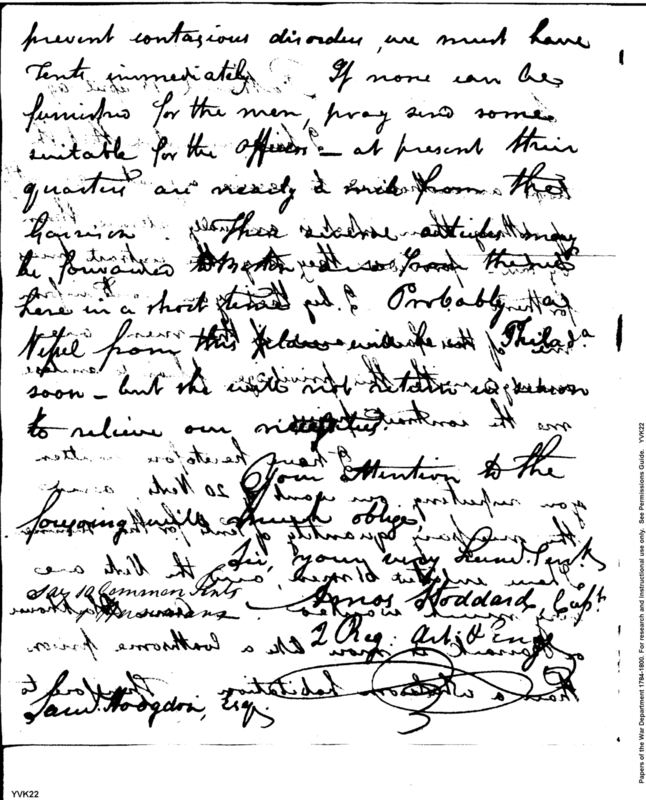 prevent contagious disorders, we must have
Tents immediately If none can be
furnished for the men, pray send some
suitable for the officers – at present their
quarters are nearly a mile from the
Garrison. These several articles may
be forwarded to Boston, and from thence
here in a short time. Probably a
Vessel from this place will be at Philada
soon – but she will not return in season
to relieve our necessities.
Your attention to the
foregoing will much oblige,
Sir, your very Humb. Servt.
Say 10 Common Tents
Amos Stoddard, Capt.
2 Reg. Art. & Engrs
Saml. Hodgdon, Esq.
YVK22
Papers of the War Department 1784-1800. For research and instructional use only. See Permissions Guide. YVK22